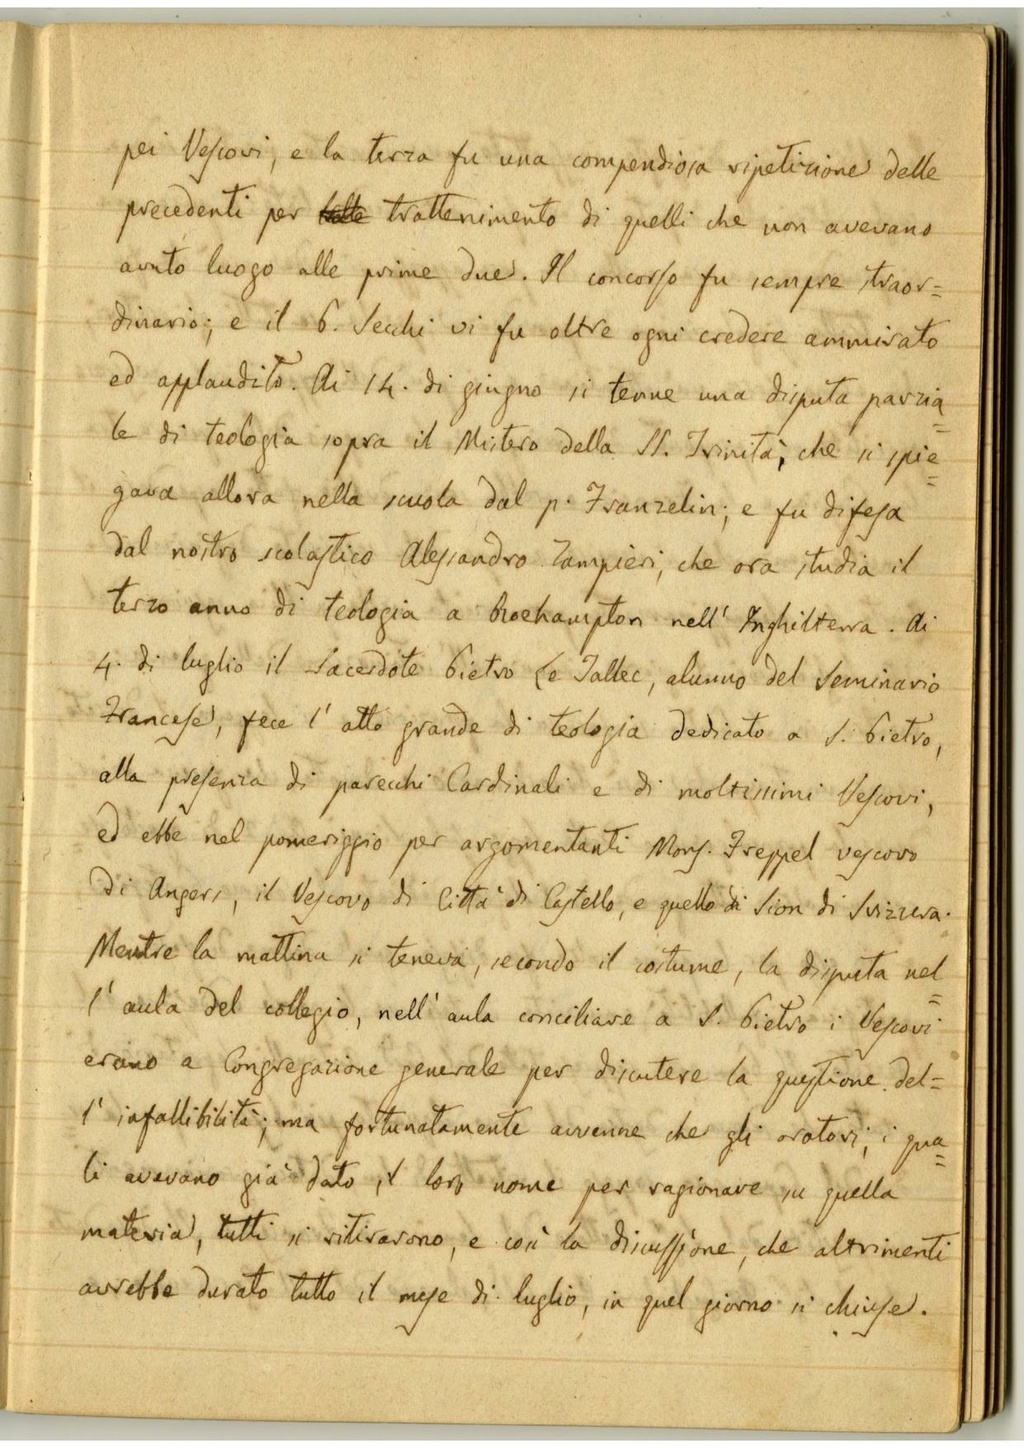 pei Vescovi, e la terza fu una compendiosa ripetizione delle
precedenti per trattenimento di quelli che non avevano
avuto luogo alle prime due. Il concorso fu sempre straor=
dinario; e il P. Secchi vi fu oltre ogni credere ammirato
ed applaudito. Ai 14. di giugno si tenne una disputa parzia=
le di teologia sopra il Mistero della SS. Trinità, che si spie=
gava allora nella scuola dal p. Franzelin; e fu difesa
dal nostro scolastico Alessandro Zampieri, che ora studia il
terzo anno di teologia a Roehampton nell' Inghilterra. Ai
4. di luglio il Sacerdote Pietro Le Tallec, alunno del Seminario
Francese, fece l' atto grande di teologia dedicato a S. Pietro,
alla presenza di parecchi Cardinali e di moltissimi Vescovi,
ed ebbe nel pomeriggio per argomentanti Mons. Freppel vescovo
di Angers, il Vescovo di Città di Castello, e quello di Sion di Svizzera.
Mentre la mattina si teneva, secondo il costume, la disputa nel=
l' aula del collegio, nell' aula conciliare a S. Pietro i Vescovi
erano a Congregazione generale per discutere la questione del=
l' infallibilità; ma fortunatamente avvenne che gli oratori, i qua=
li avevano già dato il loro nome per ragionare su quella
materia, tutti si ritirarono, e così la discussione, che altrimenti
avrebbe durato tutto il mese di luglio, in quel giorno si chiuse.